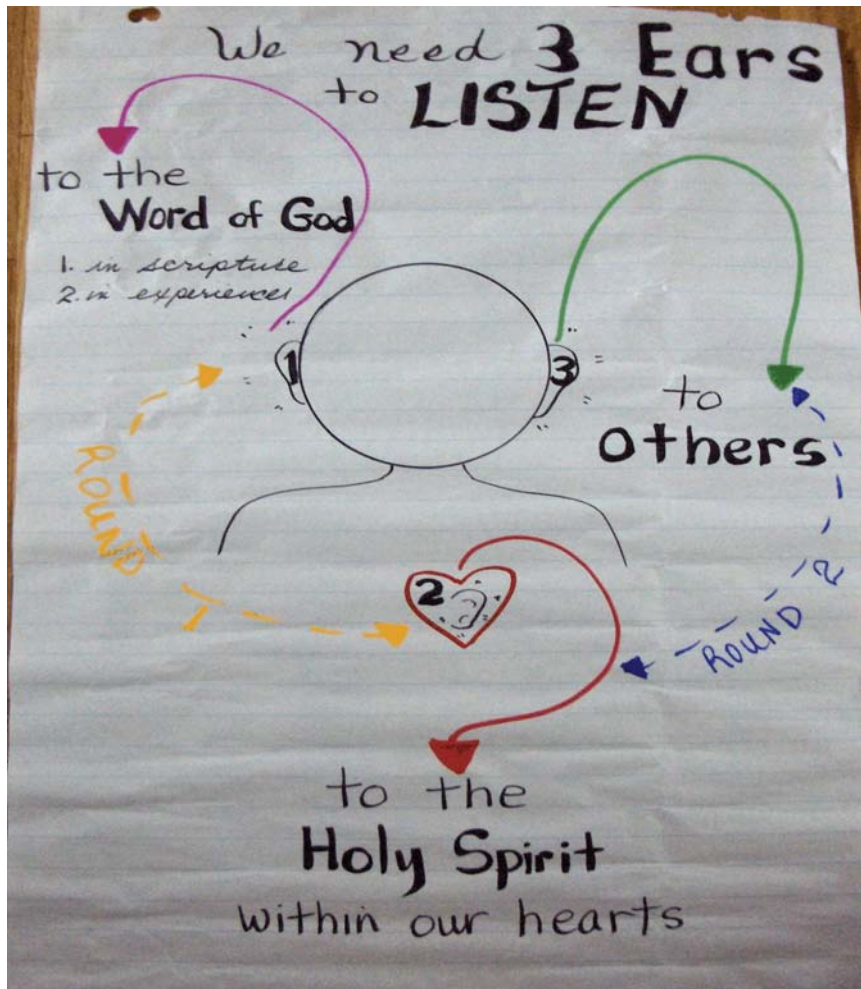 We need 3 Ears
to LISTEN
to the
Word of God
1. in scripture
2. in experiences
1
3
to
Others
ROUND 1
2
ROUND 2
to the
Holy Spirit
within our hearts